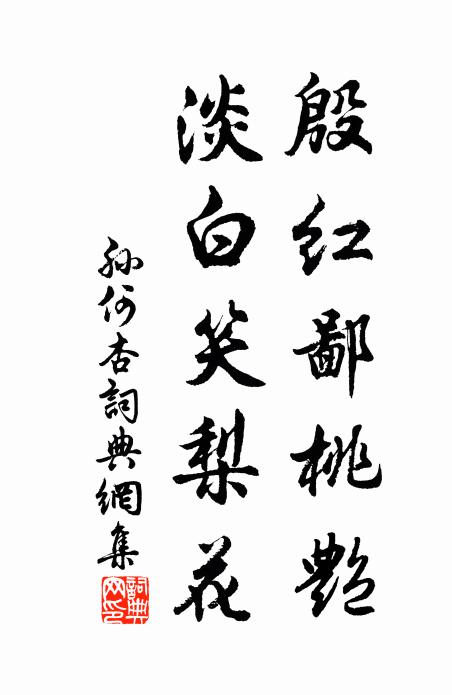 殷红鄙桃艷
淡白笑梨花
孙何杏詞典網集
詞典网印